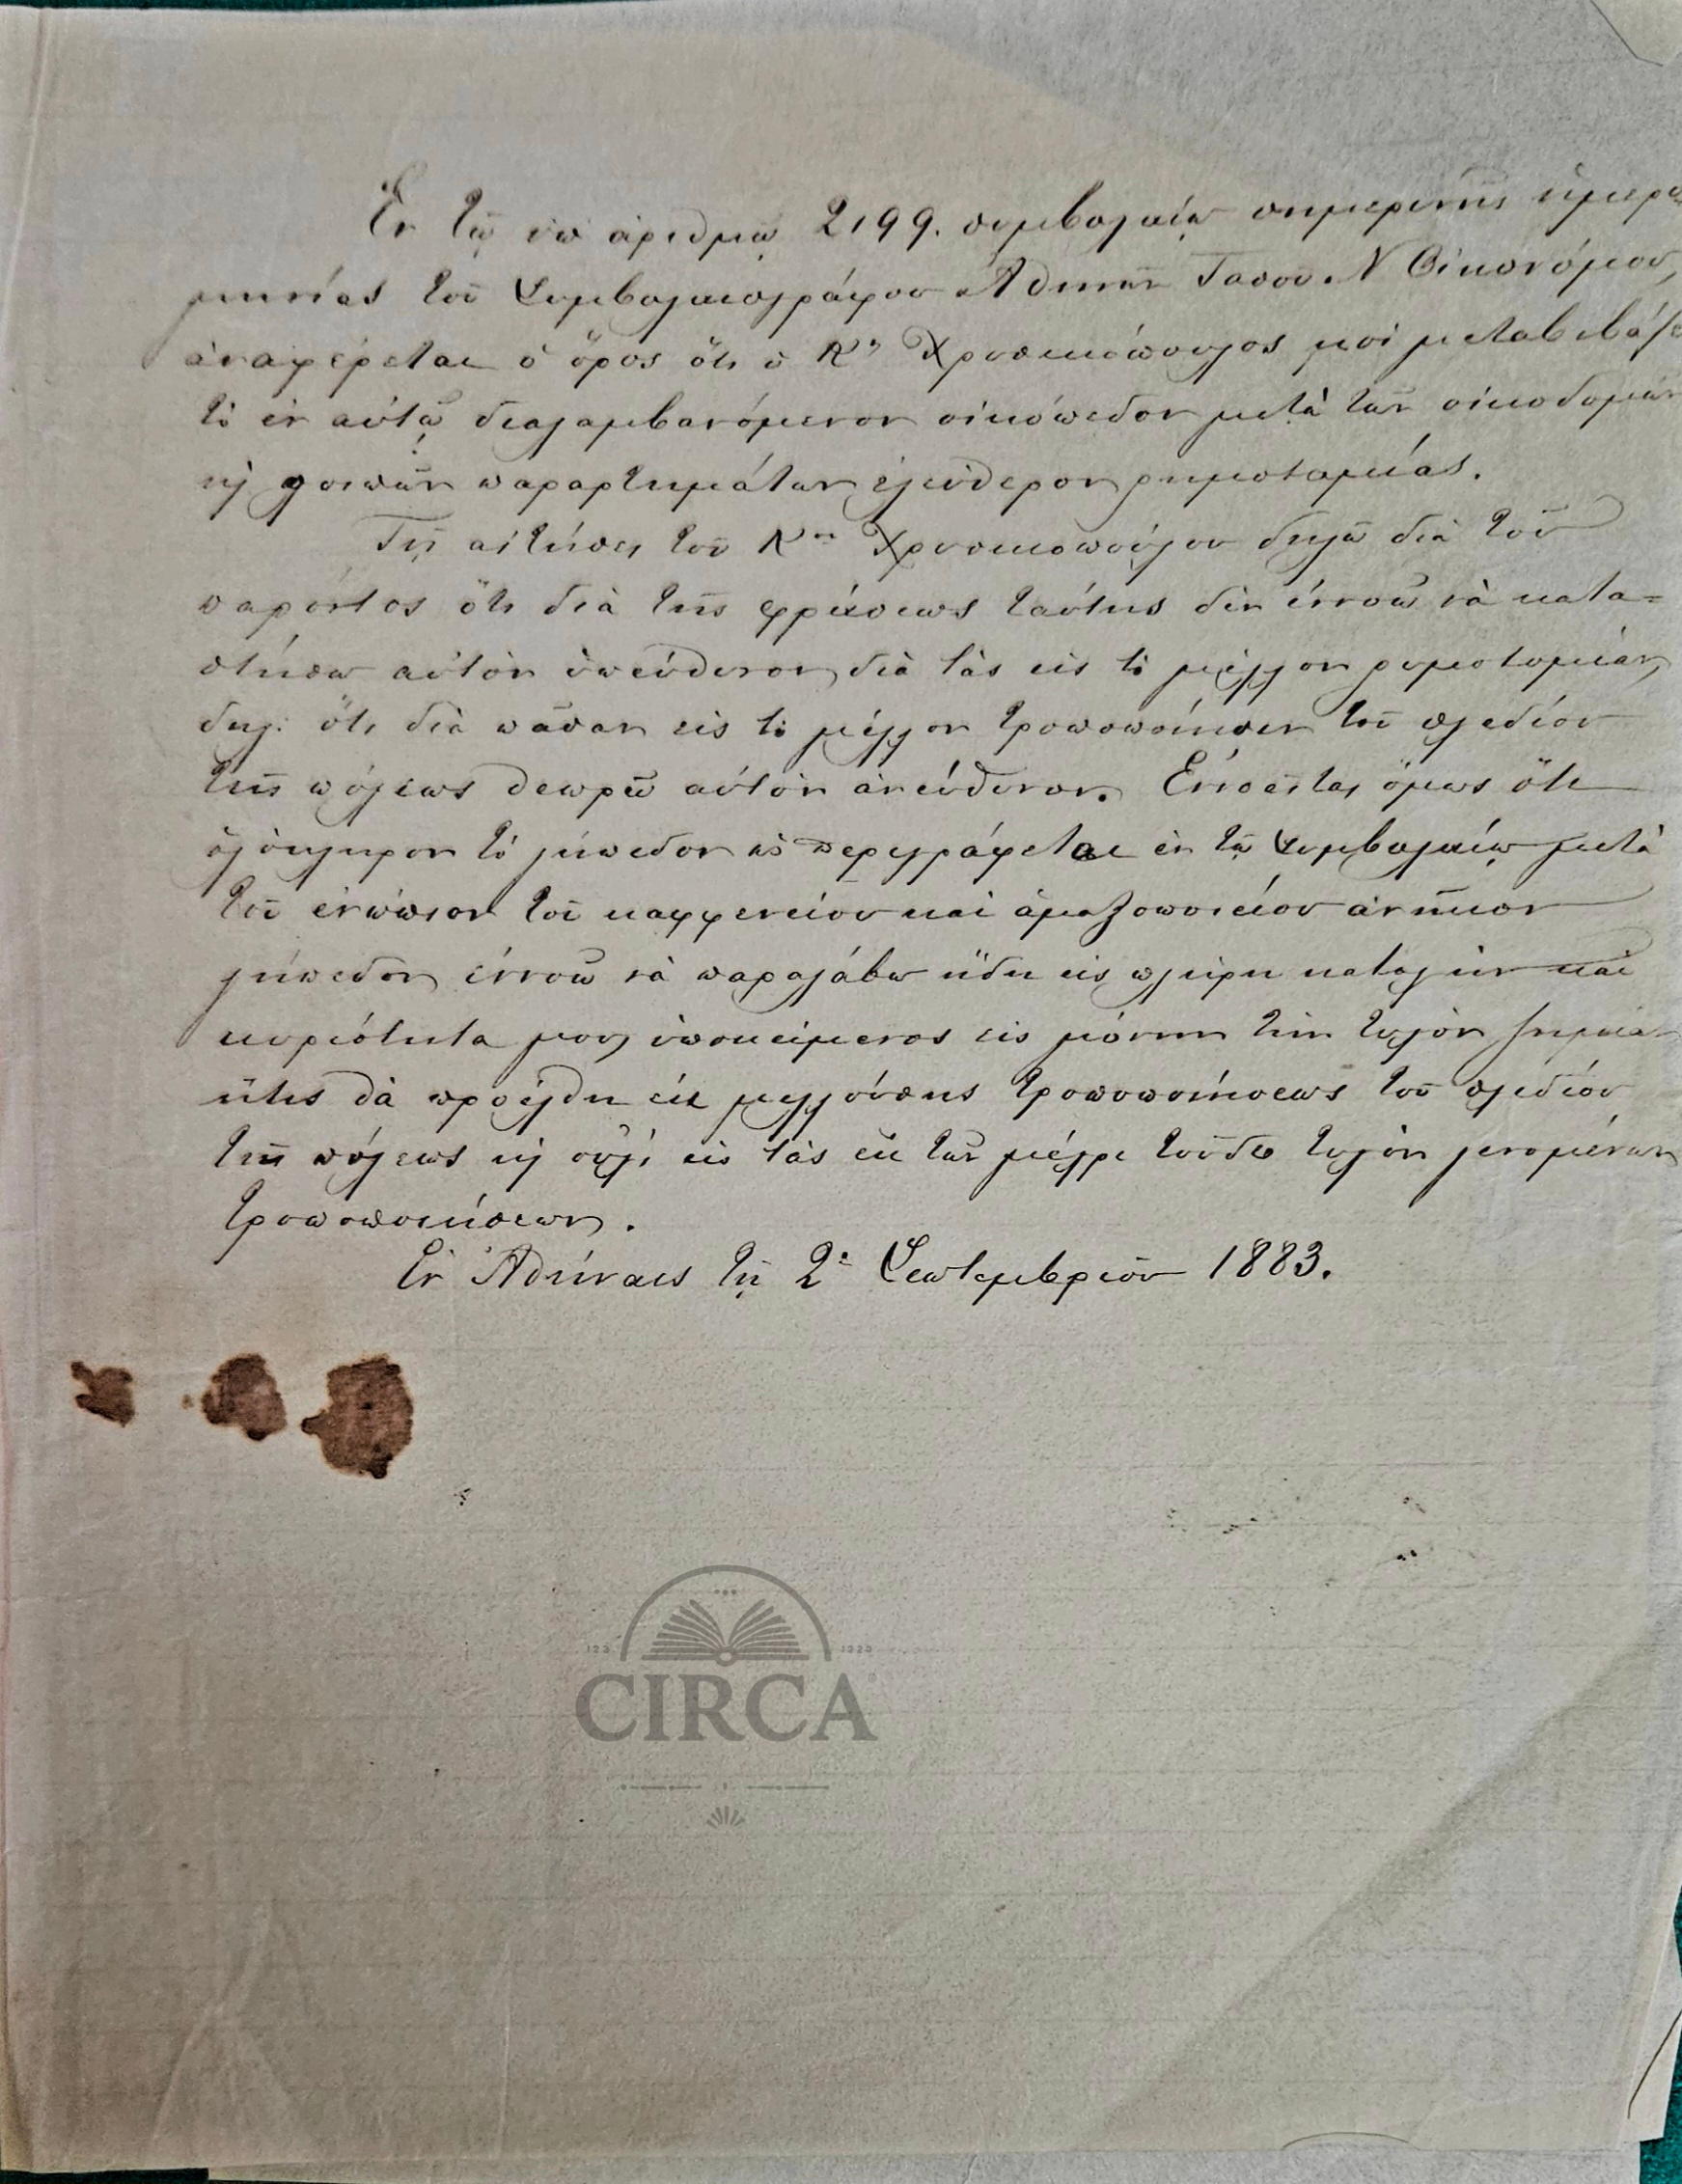 Ἐν τῷ ὑπ' ἀριθμῷ 2199. συμβολαίῳ σημερινῆς ἡμερο
μηνίας τοῦ Συμβολαιογράφου Ἀθηνῶν Τάσου Ν Οἰκονόμου,
ἀναφέρεται ὁ ὅρος ὅτι ὁ Κος Χρυσικόπουλος μοὶ μεταβιβάζει
τὸ ἐν αὐτῷ διαλαμβανόμενον οἰκόπεδον μετὰ τῶν οἰκοδομῶν
καὶ λοιπῶν παραρτημάτων ἐλεύθερον ρυμοτομίας.
Τῇ αἰτήσει τοῦ Κου Χρυσικοπούλου δηλῶ διὰ τοῦ
παρόντος ὅτι διὰ τῆς φράσεως ταύτης δὲν ἐννοῶ νὰ κατα=
στήσω αὐτὸν ὑπεύθυνον διὰ τὰς εἰς τὸ μέλλον ρυμοτομίας,
δηλ: ὅτι διὰ πᾶσαν εἰς τὸ μέλλον τροποποίησιν τοῦ σχεδίου
τῆς πόλεως θεωρῶ αὐτὸν ἀνεύθυνον. Ἐννοεῖται ὅμως ὅτι
ὁλόκληρον τὸ γήπεδον ὡς περιγράφεται ἐν τῷ Συμβολαίῳ μετὰ
τοῦ ἐνώπιον τοῦ καφφενείου καὶ ἁμαξοποιείου ἀνῆκον
γήπεδον ἐννοῶ νὰ παραλάβω ἤδη εἰς πλήρη κατοχὴν καὶ
κυριότητα μου, ὑποκείμενος εἰς μόνην τὴν τυχὸν ζημίαν
ἥτις θὰ προέλθῃ ἐκ μελλούσης τροποποιήσεως τοῦ σχεδίου
τῆς πόλεως καὶ οὐχὶ εἰς τὰς ἐκ τῶν μέχρι τοῦδε τυχὸν γενομένων
τροποποιήσεων.
Ἐν Ἀθήναις τῇ 2ᾳ Σεπτεμβρίου 1883.
CIRCA